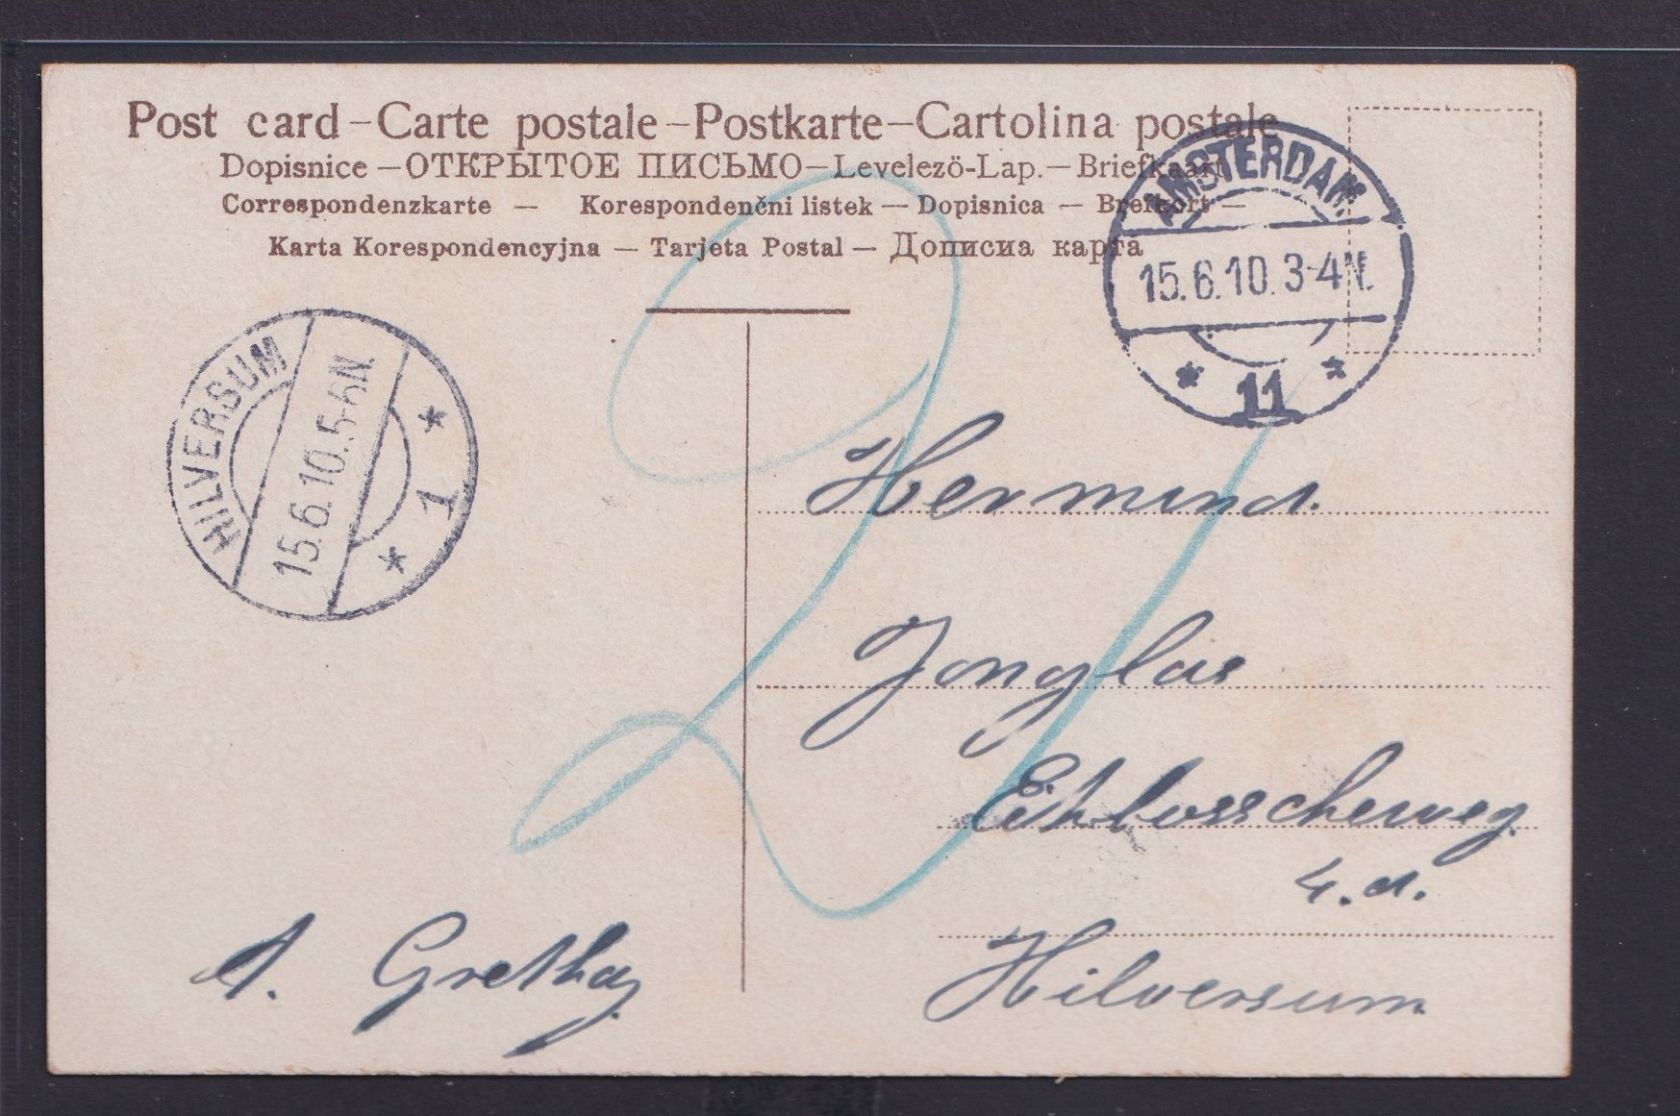 Post card – Carte postale – Postkarte – Cartolina postale
Dopisnice – ОТКРЫТОЕ ПИСЬМО – Levelező-Lap. – Briefkaart
Correspondenzkarte – Korespondenčni listek – Dopisnica – Brefkort –
Karta Korespondencyjna – Tarjeta Postal – Дописна карта
AMSTERDAM
15.6.10. 3-4N.
* 11 *
HILVERSUM
15.6.10.5-6N.
* 1 *
Hermina.
Hilversum